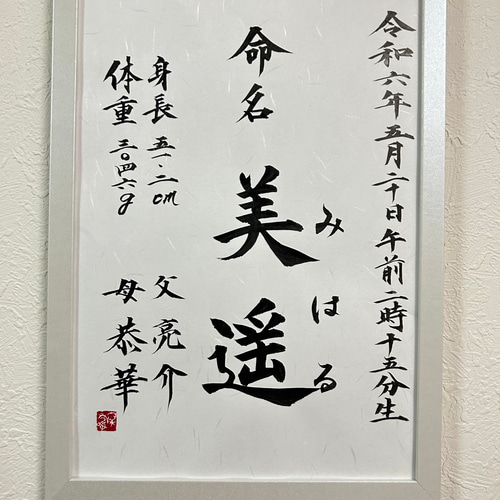 令和六年五月二十日午前二時十五分生
命名 美遥
みはる
身長 五一・二cm
体重 三〇四六g
父 亮介
母 恭華